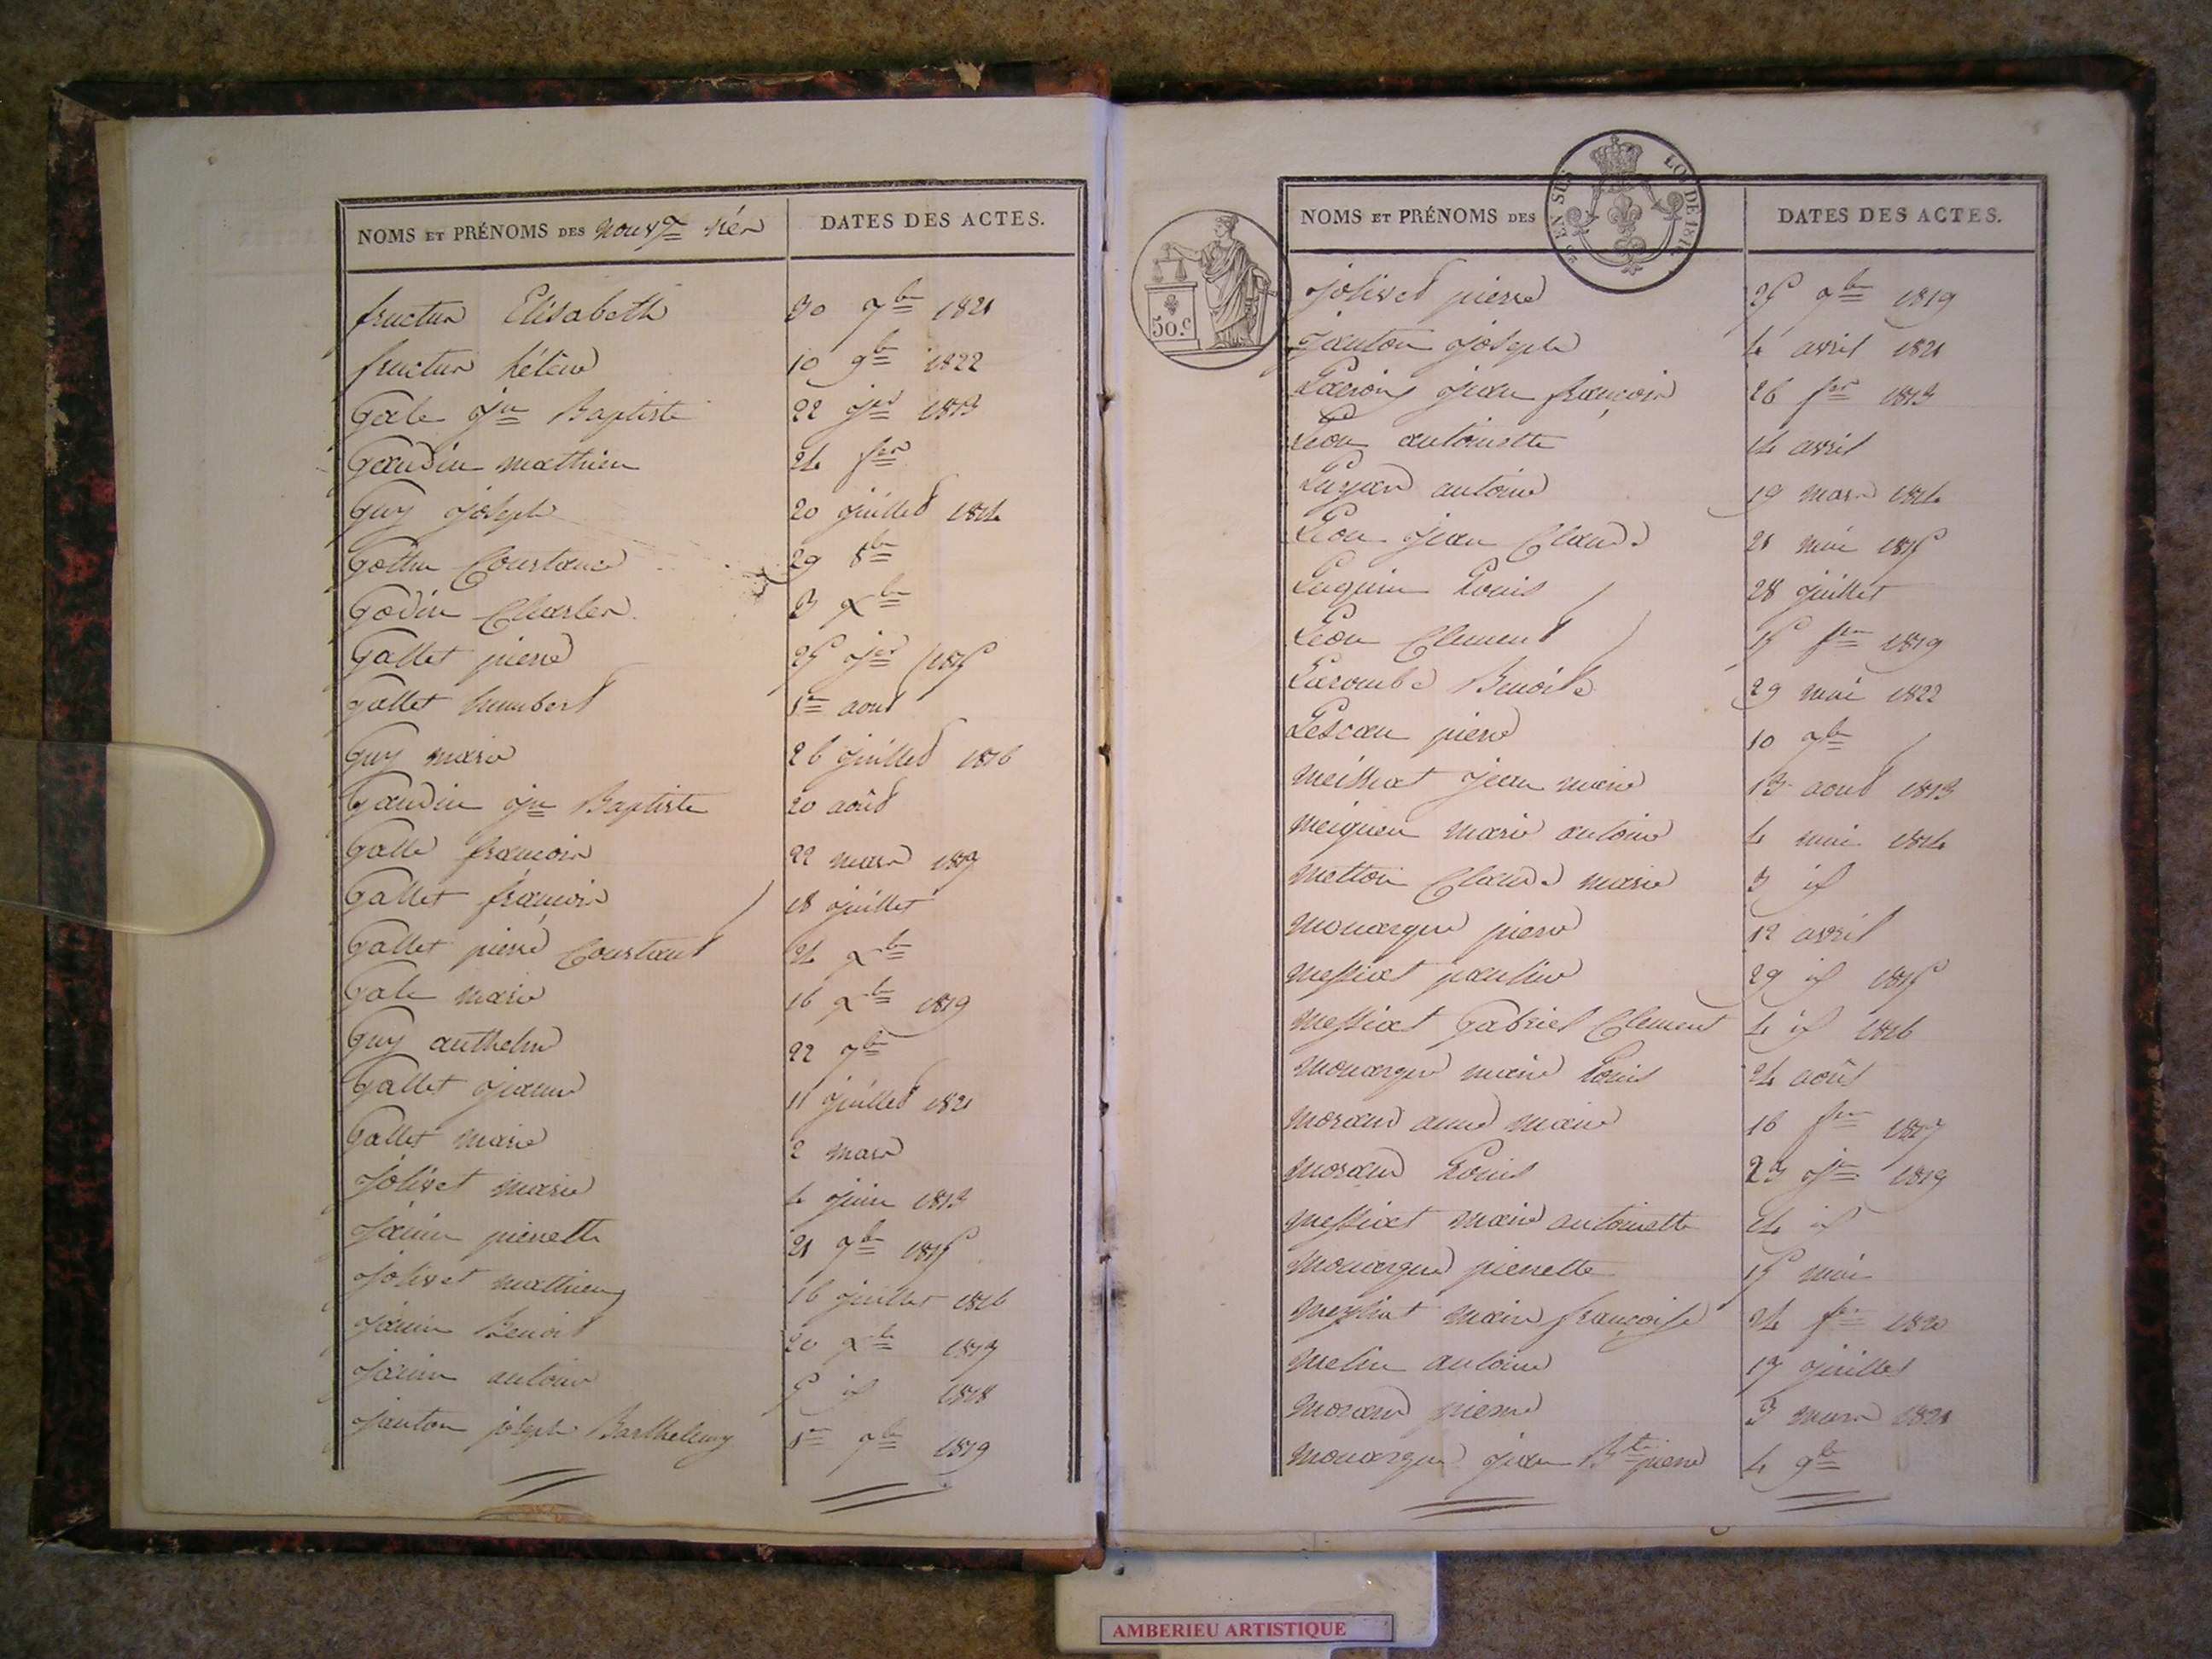 NOMS ET PRÉNOMS DES nouv. nés DATES DES ACTES.
fructus Elisabeth 30 7bre 1821
fructus hélène 10 9bre 1822
Gale jn Baptiste 22 jer 1813
Gaudin mathieu 24 fer
Guy joseph 20 juillet 1814
Constance 29 8bre
Godin Charles 3 xbre
Gallet pierre 25 jer 1815
gallet humbert 1er aout
Guy marie 26 juillet 1816
Gaudin jn Baptiste 20 août
Galle françois 22 mars
Gallet françois 18 juillet
Gallet pierre Constant 24 xbre
Gale marie 16 xbre 1819
Guy anthelme 22 7bre
Gallet jeanne 11 juillet 1821
Gallet marie 2 mars
jolivet marie 4 juin 1813
janin pierrette 21 7bre 1815
jolivet mathieu 16 juillet 1816
janin Benoit 20 xbre 1817
janin antoine 5 id 1818
janton joseph Barthelemy 1er 7bre 1819
NOMS ET PRÉNOMS DES DATES DES ACTES.
LOI DE 181
50.c
jolivet pierre 25 9bre 1819
janton joseph 4 avril 1821
jean françois 26 fer 1813
Léon antoinette 14 avril
antoine 19 mars 1814
Léon jean Claude 21 mai 1815
Luquin Louis 28 juillet
Léon Clement 15 fer 1819
Lacombe Benoite 29 mai 1822
Lescau pierre 10 7bre
meilliat jean marie 13 aout 1813
marie antoine 4 mai 1814
metton Claude marie 3 id
monargue pierre 12 avril
messiat pauline 29 id 1815
messiat Gabriel Clement 4 id 1816
monargue marie Louis 24 août
morand anne marie 16 fer 1817
morand Louis 23 jer 1819
messiat marie antoinette 14 id
monargue pierrette 15 mai
messiat marie françoise 24 fer 1820
melin antoine 17 juillet
morand pierre 3 mars 1821
monargue jean Bte pierre 4 9bre
AMBERIEU ARTISTIQUE